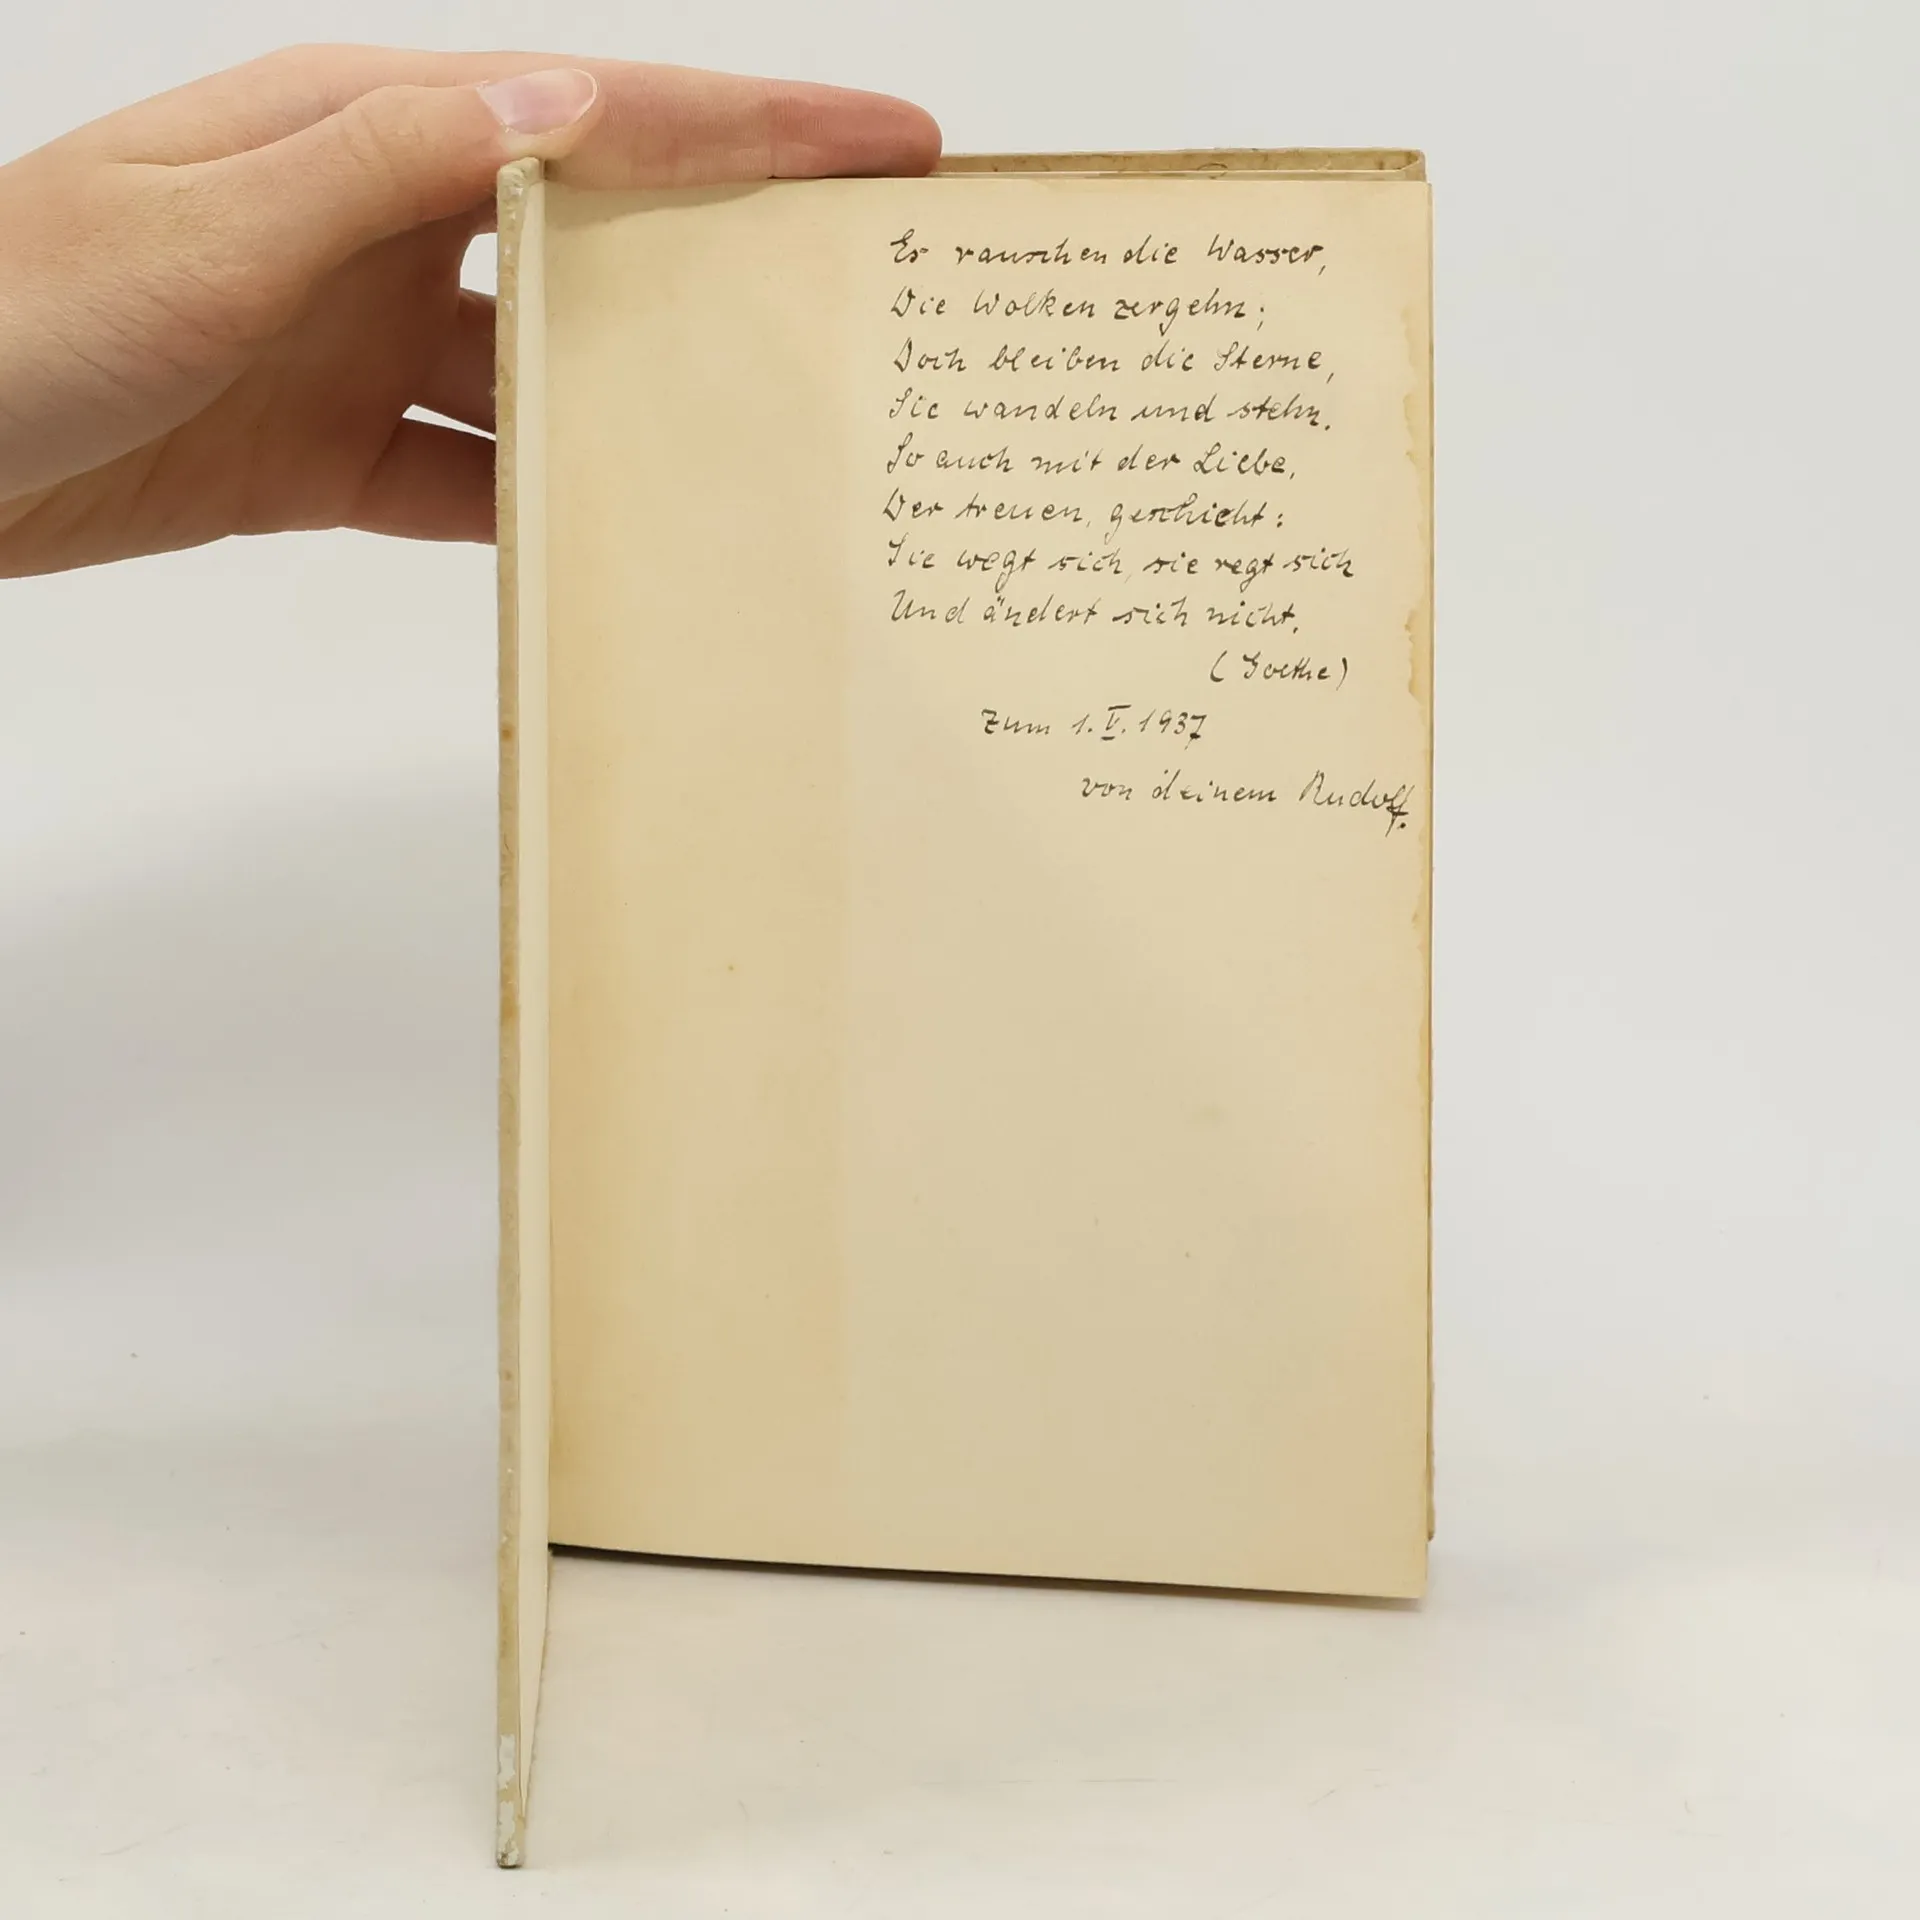 Es rauschen die Wasser,
Die Wolken zergehn;
Doch bleiben die Sterne,
Sie wandeln und stehn.
So auch mit der Liebe,
Der treuen, geschicht:
Sie wegt sich, sie regt sich
Und ändert sich nicht.
(Goethe)
Zum 1. V. 1937
von deinem Rudolf.